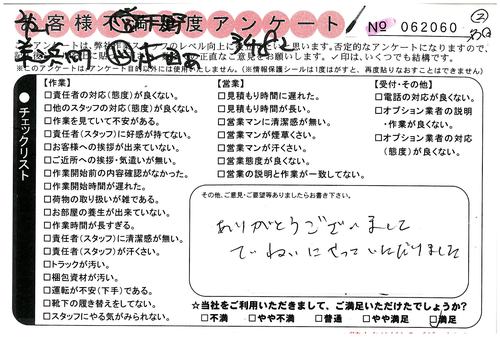 お客様不満足度アンケート
No 062060
②
このアンケートは、弊社
否定的なアンケートになりますので、
正直なご意見をお願いします。✓印は、いくつでも結構です。
※このアンケートは
アンケート目的以外には使用いたしません。（※情報保護シールは1度はがすと、再度貼りなおすことはできません）
チェックリスト
【作業】
□責任者の対応(態度)が良くない。
□他のスタッフの対応(態度)が良くない。
□作業を見ていて不安がある。
□責任者(スタッフ)に好感が持てない。
□お客様への挨拶が出来ていない。
□ご近所への挨拶・気遣いが無い。
□作業開始前の内容確認がなかった。
□作業開始時間が遅れた。
□荷物の取り扱いが雑である。
□お部屋の養生が出来ていない。
□作業時間が長すぎる。
□責任者(スタッフ)に清潔感が無い。
□責任者(スタッフ)が汗くさい。
□トラックが汚い。
□梱包資材が汚い。
□運転が不安(下手)である。
□靴下の履き替えをしてない。
□スタッフにやる気がみられない。
【営業】
□見積もり時間に遅れた。
□見積もり時間が長い。
□営業マンに清潔感が無い。
□営業マンが煙草くさい。
□営業マンが汗くさい。
□営業態度が良くない。
□営業の説明と作業が一致してない。
【受付・その他】
□電話の対応が良くない。
□オプション業者の説明
・作業が良くない。
□オプション業者の対応
(態度)が良くない。
その他、ご意見・ご要望等ありましたらお書き下さい。
ありがとうございまして
ていねいにやっていただけました
☆当社をご利用いただきまして、ご満足いただけたでしょうか?
□不満 □やや不満 □普通 □やや満足 □満足